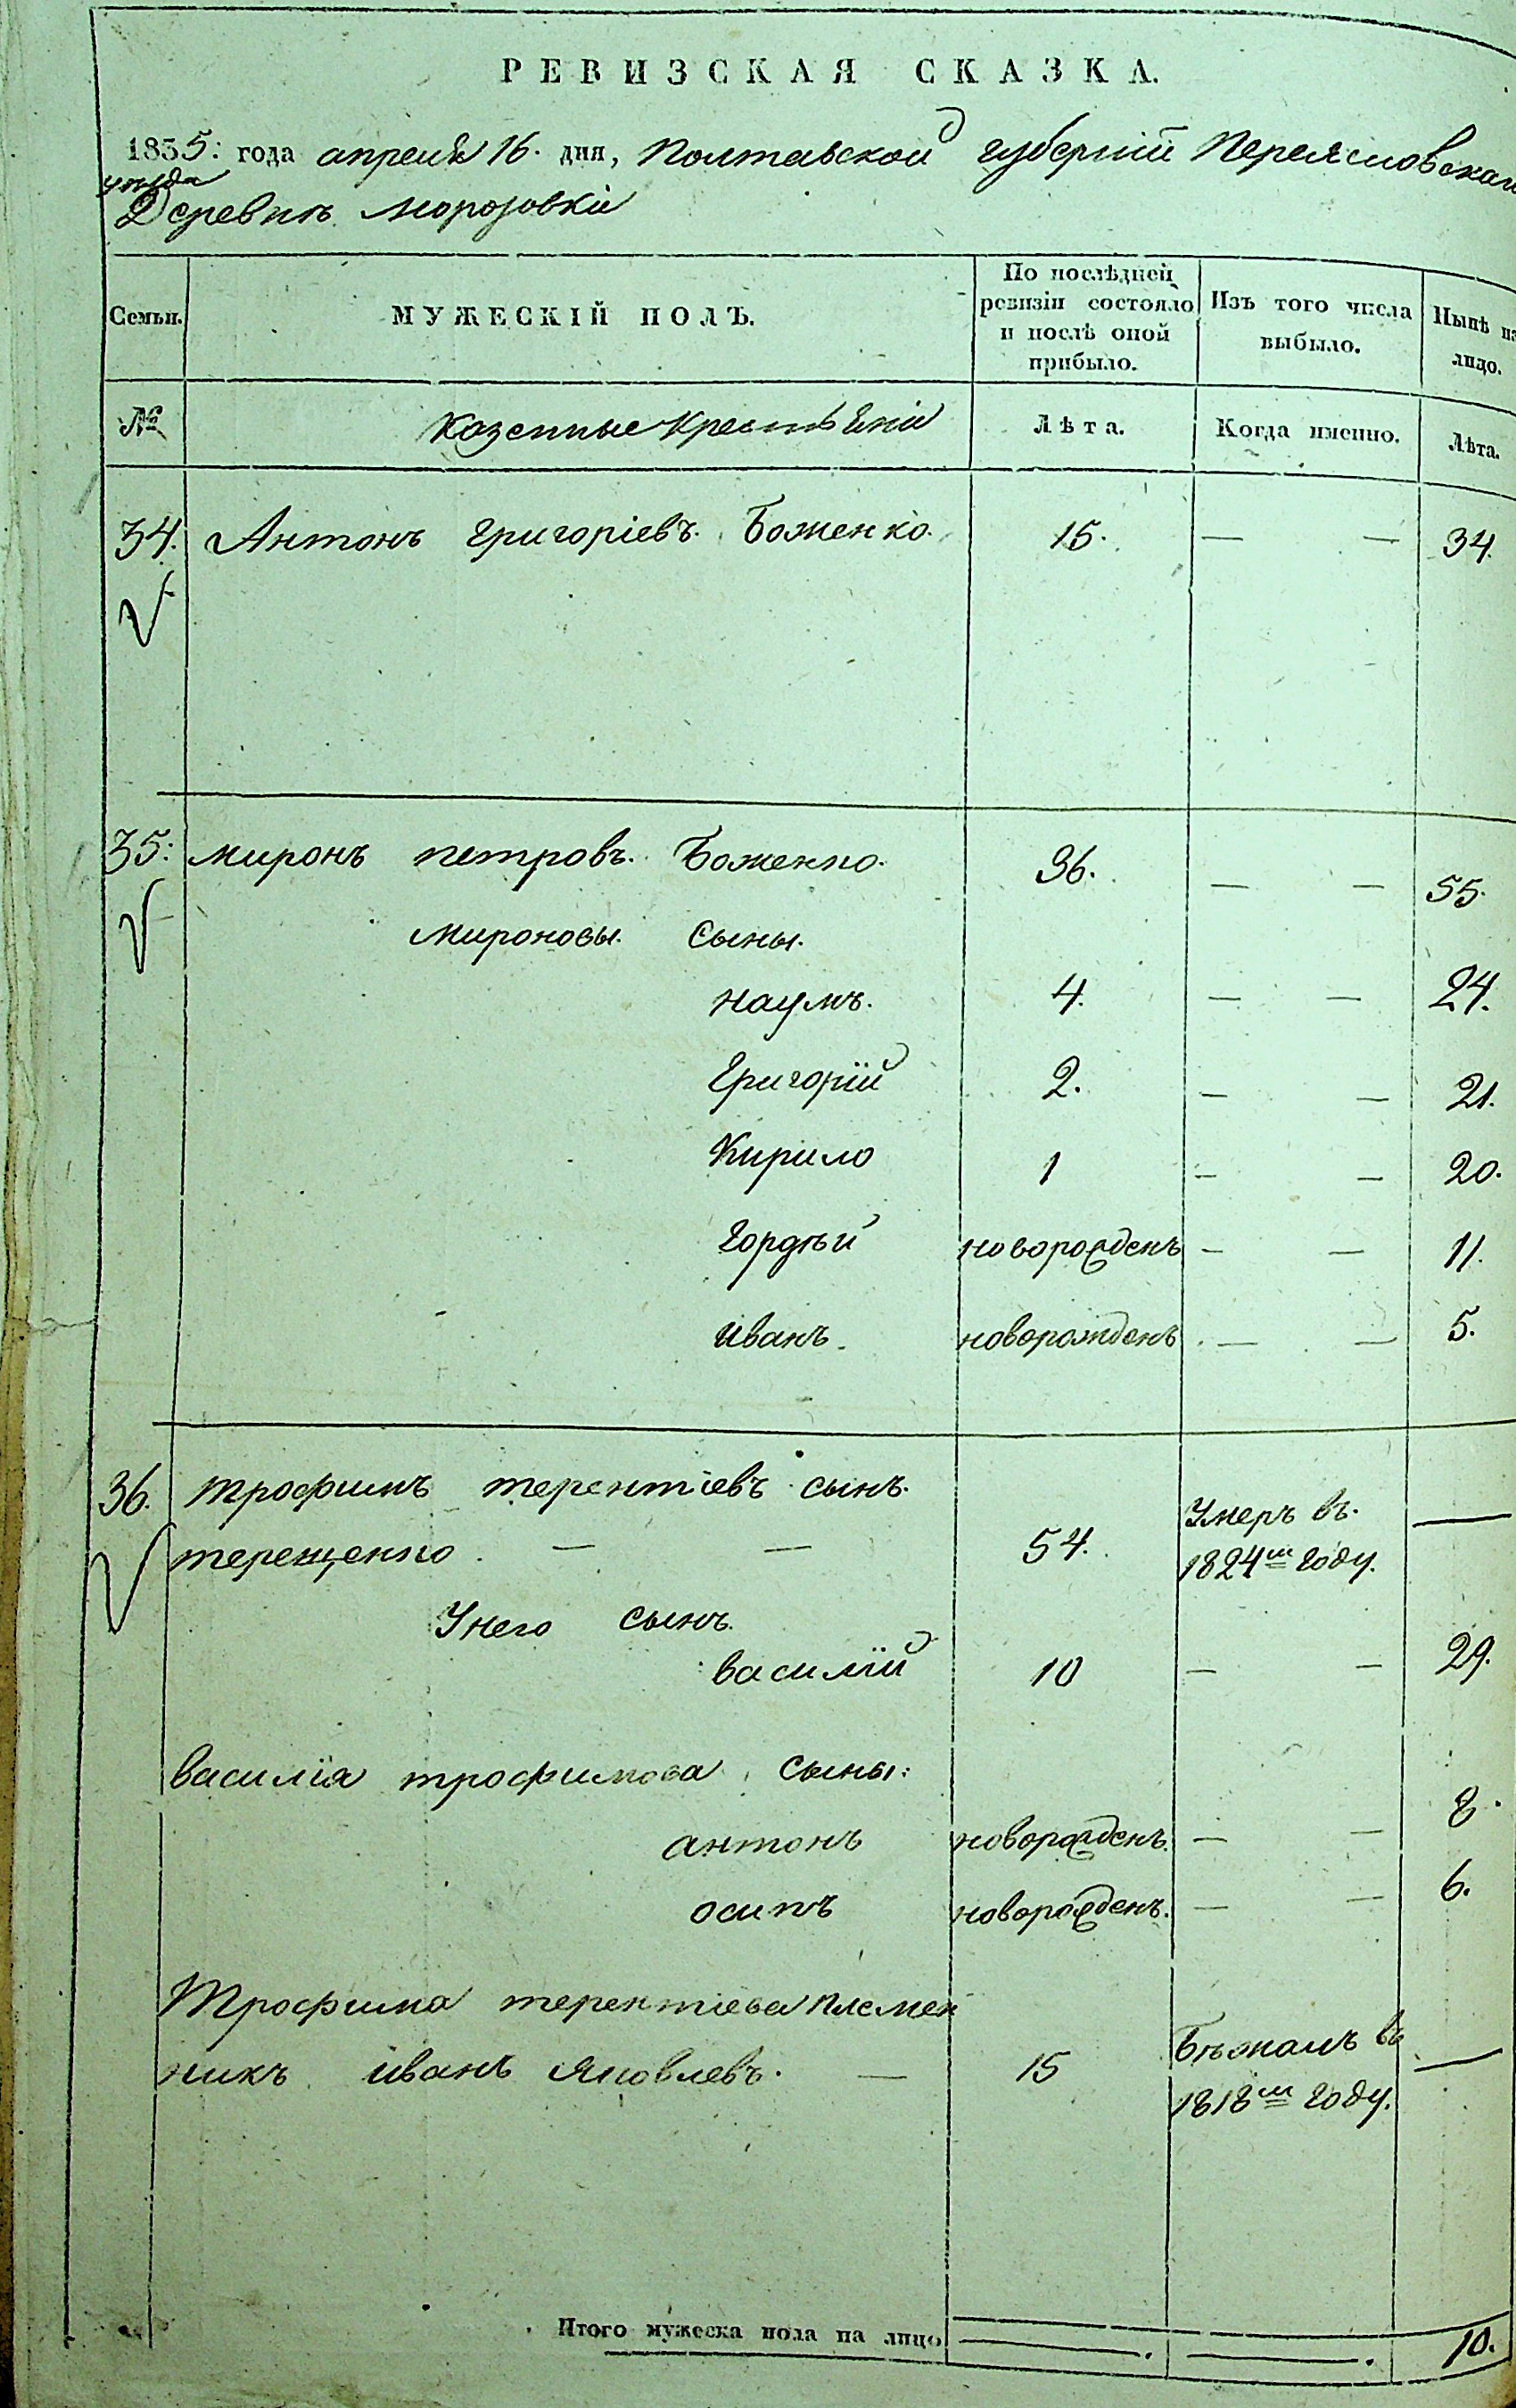 РЕВИЗСКАЯ СКАЗКА.
1835: года апреля 16. дня, Полтавской губернїи Переясловскаго
уезда
Деревнѣ Морозовки
Семьи. МУЖЕСКІЙ ПОЛЪ. По послѣдней ревизіи состояло и послѣ оной прибыло. Изъ того числа выбыло. Нынѣ на лицо.
№ Казенные Крестьяни Лѣта. Когда именно. Лѣта.
34. Антонъ Григоріевъ. Боженко. 15. — — 34.
35: Миронъ петровъ. Боженко. 36. — — 55.
Мироновы. Сыны.
Наумъ. 4. — — 24.
Григорїй 2. — — 21.
Кирило 1 — — 20.
Гордѣй новорожденъ — — 11.
Иванъ. новорожденъ — — 5.
36. Трофимъ терентіевъ сынъ.
терещенко. — — 54. Умеръ въ. 1824м году. —
Унего сынъ.
василїй 10 — — 29.
василїя трофимова сыны:
антонъ новорожденъ. — — 8.
осипъ новорожденъ. — — 6.
Трофима терентіева племен
никъ иванъ Яковлевъ. — 15 Бѣжалъ въ 1818м году. —
Итого мужеска пола на лицо — . — . 10.